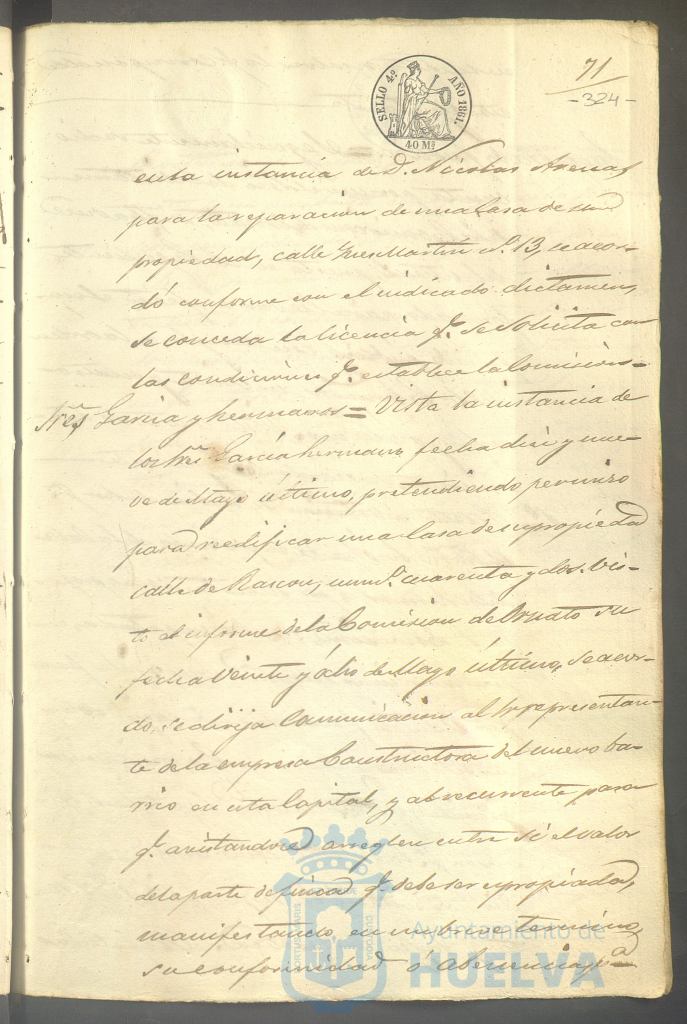 SELLO 4º AÑO 1861.
40 Ms
71
- 324 -
en la instancia de D. Nicolas Arenas
para la reparacion de una Casa de su
propiedad, calle Martin Nº 13, se acor-
dó conforme con el indicado dictamen,
se conceda la licencia q.e se solicita con
las condiciones q.e establece la Comision=
Sres Garcia y hermanos = Vista la instancia de
los Sres Garcia hermanos, fecha diez y nue-
ve de Mayo último, pretendiendo permiso
para reedificar una Casa de su propiedad
calle de Rascon, num.º cuarenta y dos. Vis-
to el informe de la Comision de Ornato su
fecha veinte y ocho de Mayo último, se acor-
dó, se dirija Comunicacion al Sr representan-
te de la empresa Constructora del nuevo ba-
rrio en esta Capital, y al recurrente para
q.e avistandose arreglen entre sí el valor
de la parte de finca q.e debe ser expropiada,
manifestando en un breve termino
su conformidad ó abenencia, pª
Ayuntamiento de
HUELVA